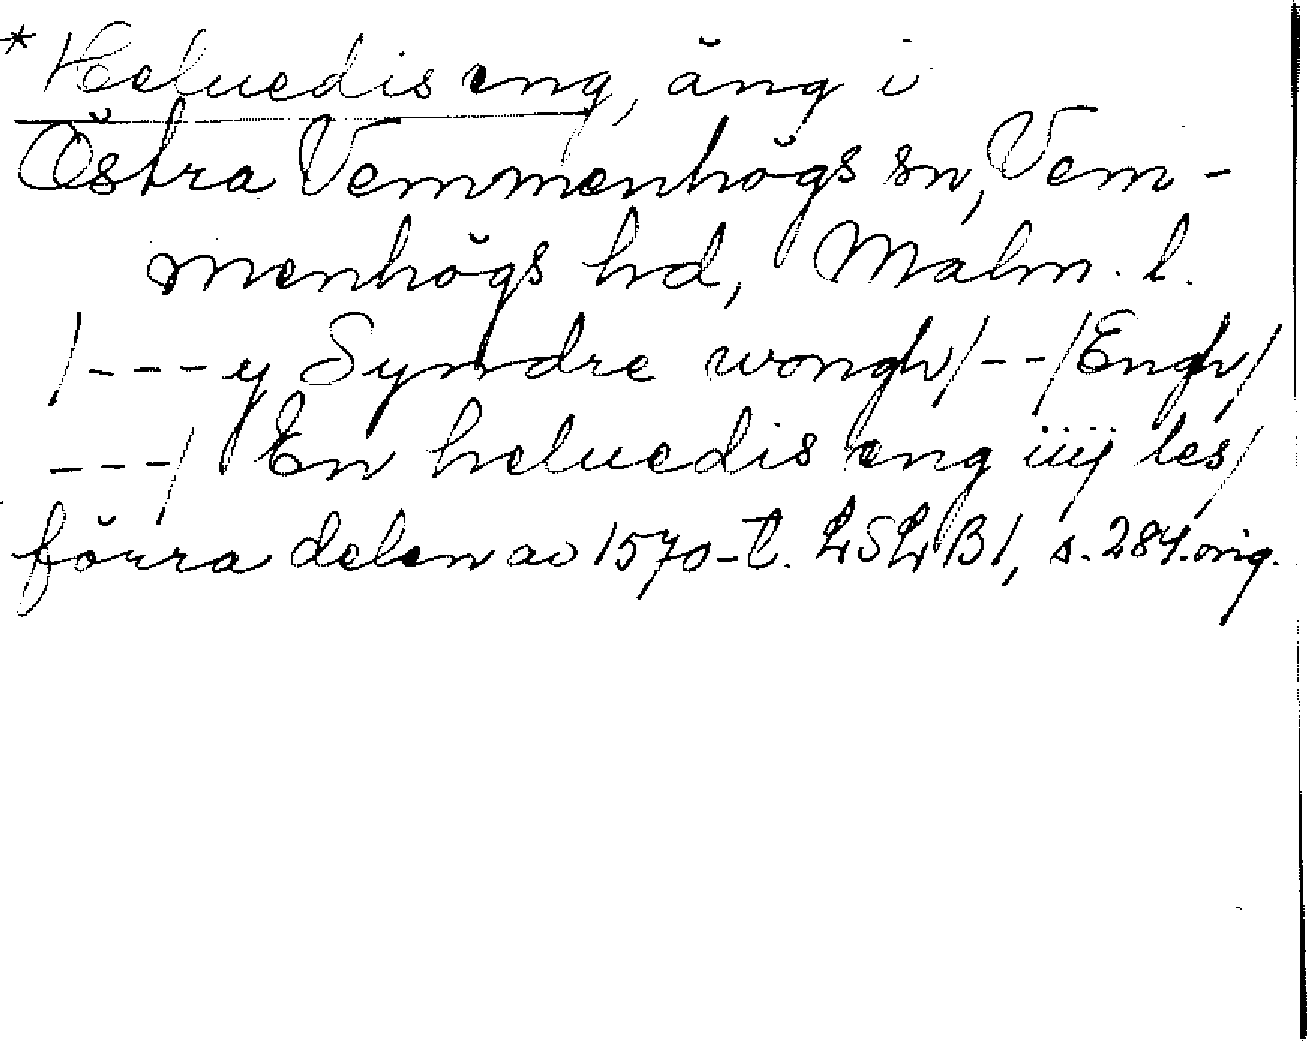 *Heluedis eng, äng i
Östra Vemmenhögs sn, Vem-
menhögs hd, Malm. l.
/---y Syndre wongh/--/Engh/
---/ En heluedis eng iiij les/
förra delen av 1570-t. LSLB1, s. 284. orig.